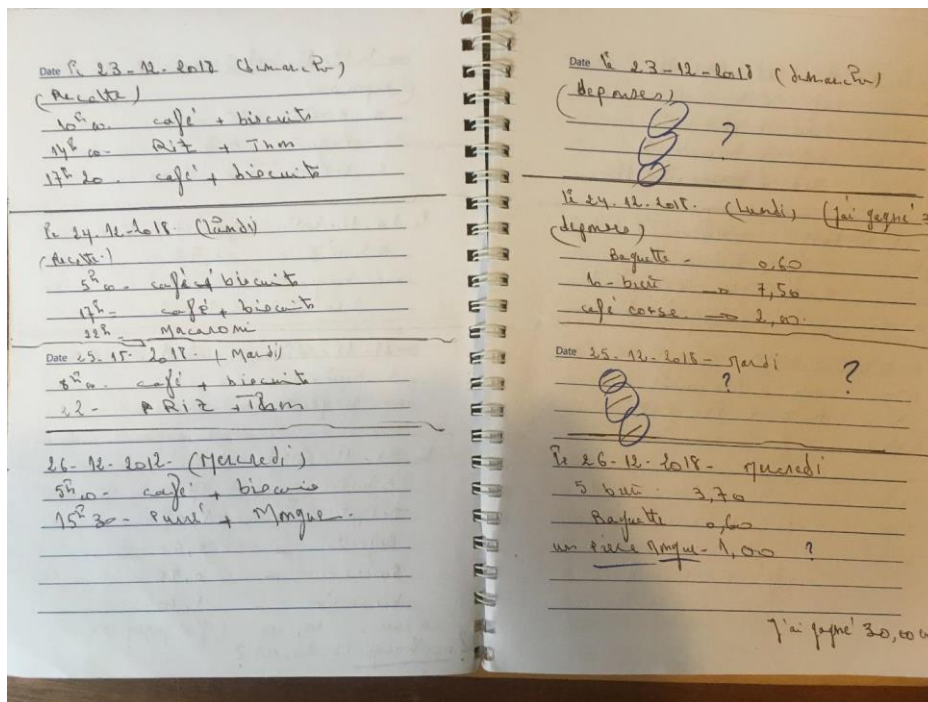 Date le 23-12-2018 (dimanche)
(Recolte)
10h00. café + biscuits
14h00- Riz + Thon
17h20. café + biscuits
le 24-12-2018. (Lundi)
(Recolte.)
5h00- café + biscuits
17h- café + biscuits
22h- Macaroni
Date 25-15-2018. (Mardi)
8h00- café + biscuits
22- Riz + Thon
26-12-2012- (Mercredi)
5h00- café + biscuis
15h30- Purré + Mongue.
Date le 23-12-2018 (dimanche)
(depenses)
?
le 24-12-2018. (Lundi) (j'ai gagné
(depense)
Baguette - 0,60
10-bierr → 7,50
café corse. → 2,00.
Date 25-12-2018- Mardi
? ?
le 26-12-2018- Mercredi
5 bierr. 3,70
Baguette 0,60
un piece Mongue- 1,00 ?
j'ai gagné 30,00